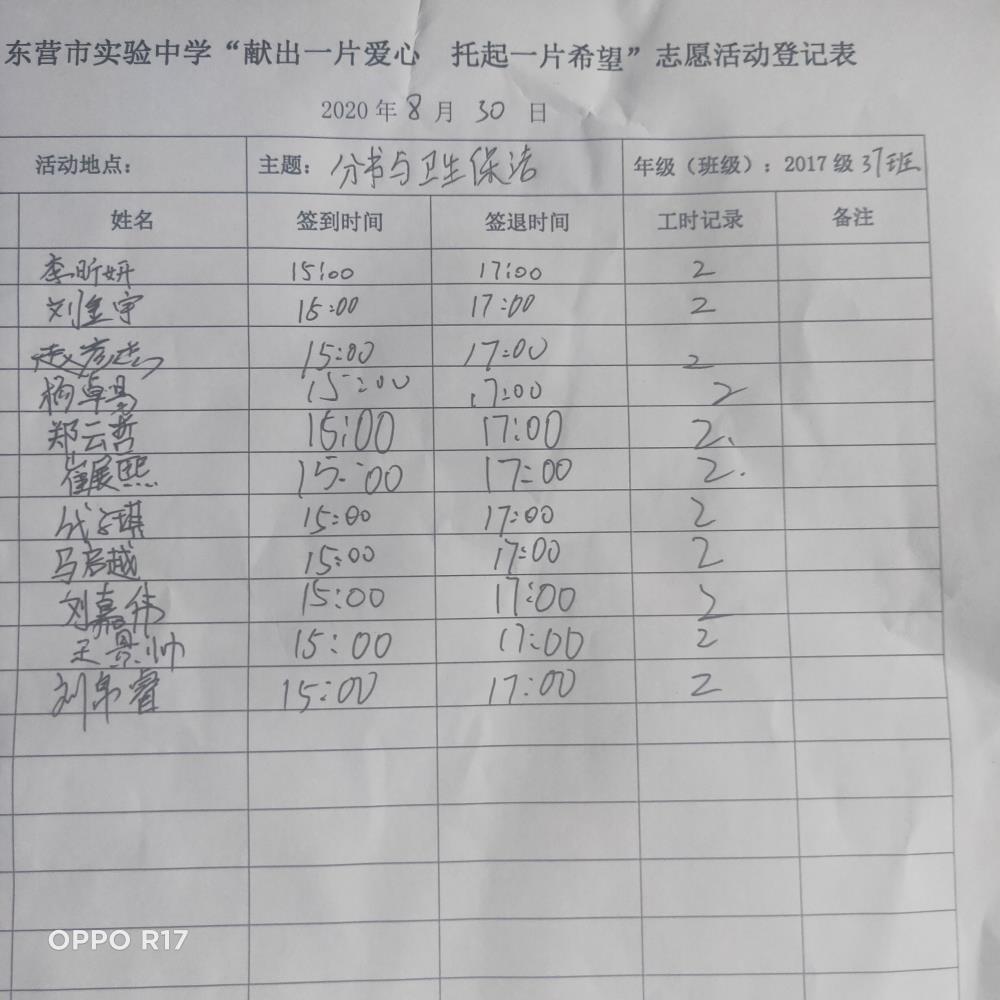 东营市实验中学“献出一片爱心 托起一片希望”志愿活动登记表
2020 年 8 月 30 日
活动地点： 主题：分书与卫生保洁 年级（班级）：2017 级 37班
姓名 签到时间 签退时间 工时记录 备注
李昕妍 15:00 17:00 2
刘金宇 15:00 17:00 2
赵 15:00 17:00 2
杨卓 15:00 17:00 2
郑云哲 15:00 17:00 2.
崔展熙 15:00 17:00 2.
琪 15:00 17:00 2
马启越 15:00 17:00 2
刘嘉伟 15:00 17:00 2
王景帅 15:00 17:00 2
刘帛睿 15:00 17:00 2
OPPO R17